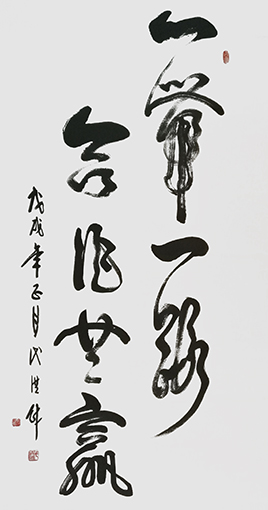 一帶一路
合作共贏
戊戌年正月